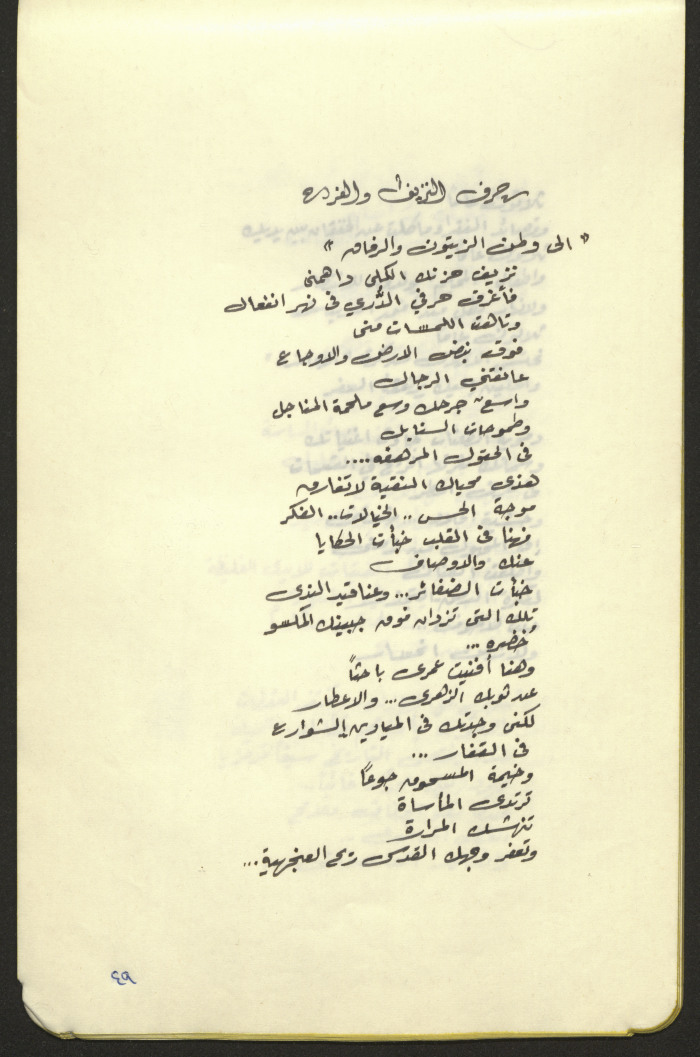 حرف النزيف والفرح
" الى وطن الزيتون والرفاق "
نزيف حزنك الكلى داهمنى
فأغرق حرفي الدُّري فى نهر انفعال
وتاهت اللمسات منى
فوق نبض الارض والاوجاع
عانقتني الرجال
واسعٌ جرحك وسع ملحمة المناجل
وطموحات السنابل
فى الحقول المرهفه ....
هذى محياك النقية لا تفارق
موجة الحس .. الخيالات .. الفكر
فهنا فى القلب خبأت الحكايا
عنك والاوصاف
خبأت الضفائر ... وعناقيد الندى
تلك التى تزدان فوق جبينك المكسو
خُضره ...
وهنا أفنيت عمرى باحثاً
عن ثوبك الزهرى ... والاعطار
لكنى وجدتك فى الميادين الشوارع
فى القفار ...
وخيمة المسحوق جوعاً
ترتدى المأساة
تنهشك المرارة
وتعفر وجهك القدسى ريح العنجهية ...
٤٩